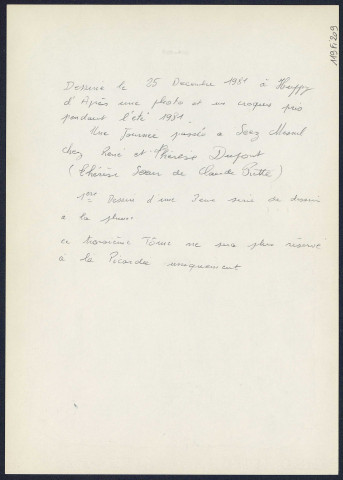 Dessiné le 25 Decembre 1981 à Happy
d'Après une photo et un croquis pris
pendant l'été 1981.
Une Journée passée à Mesnil
chez René et Thérèse Dufort
(Thérèse Soeur de Claude Pitte)
1er Dessin d'une 3eme serie de dessin
a la plume
ce troisième Tôme ne sera plus réservé
à la Picardie uniquement
119Fi209